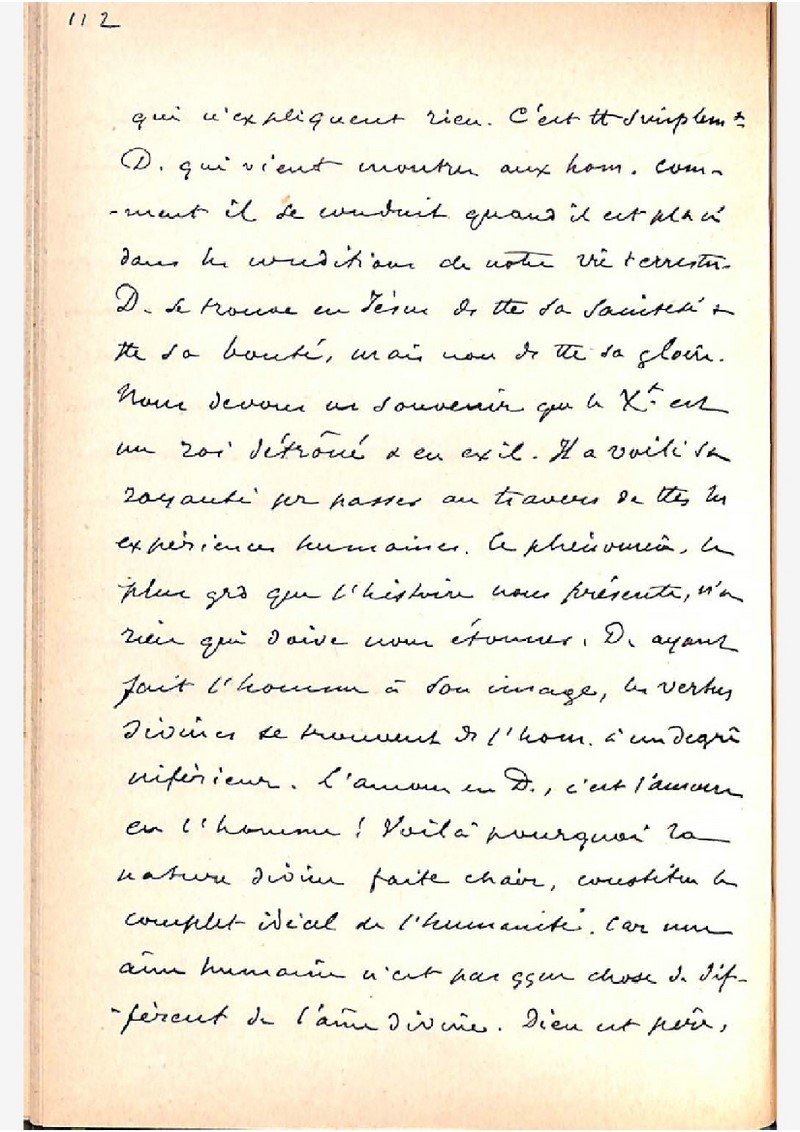 112
qui n'expliquent rien. C'est tt simplemt
D. qui vient montrer aux hom. com-
-ment il se conduit quand il est placé
dans les conditions de notre vie terrestre.
D. se trouve en Jésus ds tte sa sainteté &
tte sa bonté, mais non ds tte sa gloire.
Nous devons ns souvenir que le Xt est
un roi détrôné & en exil. Il a voilé sa
royauté pr passer au travers de ttes les
expériences humaines. Ce phénomène, le
plus grd que l'histoire nous présente, n'a
rien qui doive nous étonner. D. ayant
fait l'homme à son image, les vertus
divines se trouvent ds l'hom. à un degré
inférieur. L'amour en D., c'est l'amour
en l'homme! Voilà pourquoi la
nature divine faite chair, constitue le
complet idéal de l'humanité. Car une
âme humaine n'est pas qque chose de dif-
-férent de l'âme divine. Dieu est père,